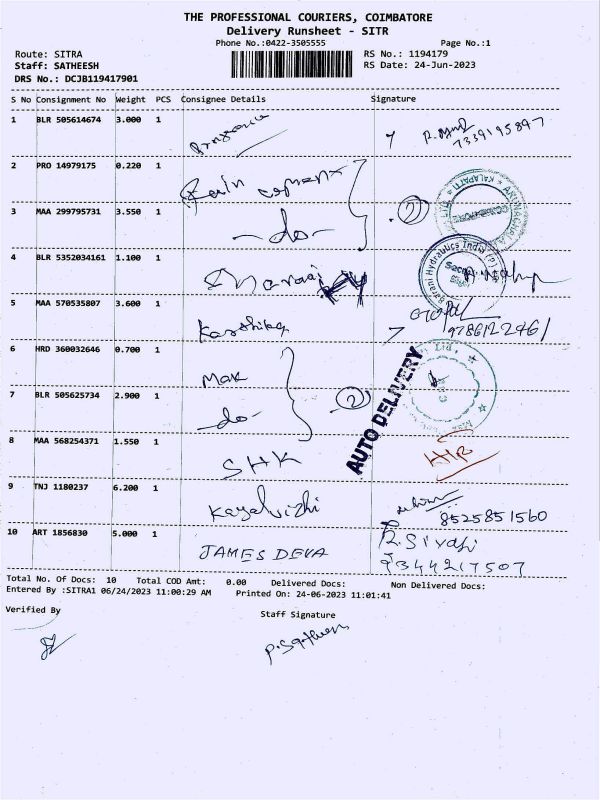 THE PROFESSIONAL COURIERS, COIMBATORE
Delivery Runsheet - SITR
Phone No.:0422-3505555
Page No.:1
Route: SITRA
RS No.: 1194179
Staff: SATHEESH
RS Date: 24-Jun-2023
DRS No.: DCJB119417901
S No Consignment No Weight PCS Consignee Details Signature
1 BLR 505614674 3.000 1 7339195897
2 PRO 14979175 0.220 1
3 MAA 299795731 3.550 1 -do-
4 BLR 5352034161 1.100 1
5 MAA 570535807 3.600 1 Karthika
6 HRD 360032646 0.700 1 Mak
7 BLR 505625734 2.900 1 -do- 2
AUTO DELIVERY
8 MAA 568254371 1.550 1 SHK
9 TNJ 1180237 6.200 1 Kayalvizhi 8525851560
10 ART 1856830 5.000 1 JAMES DEVA R. Sivaji
9344217507
Total No. Of Docs: 10 Total COD Amt: 0.00 Delivered Docs: Non Delivered Docs:
Entered By :SITRA1 06/24/2023 11:00:29 AM Printed On: 24-06-2023 11:01:41
Verified By
Staff Signature